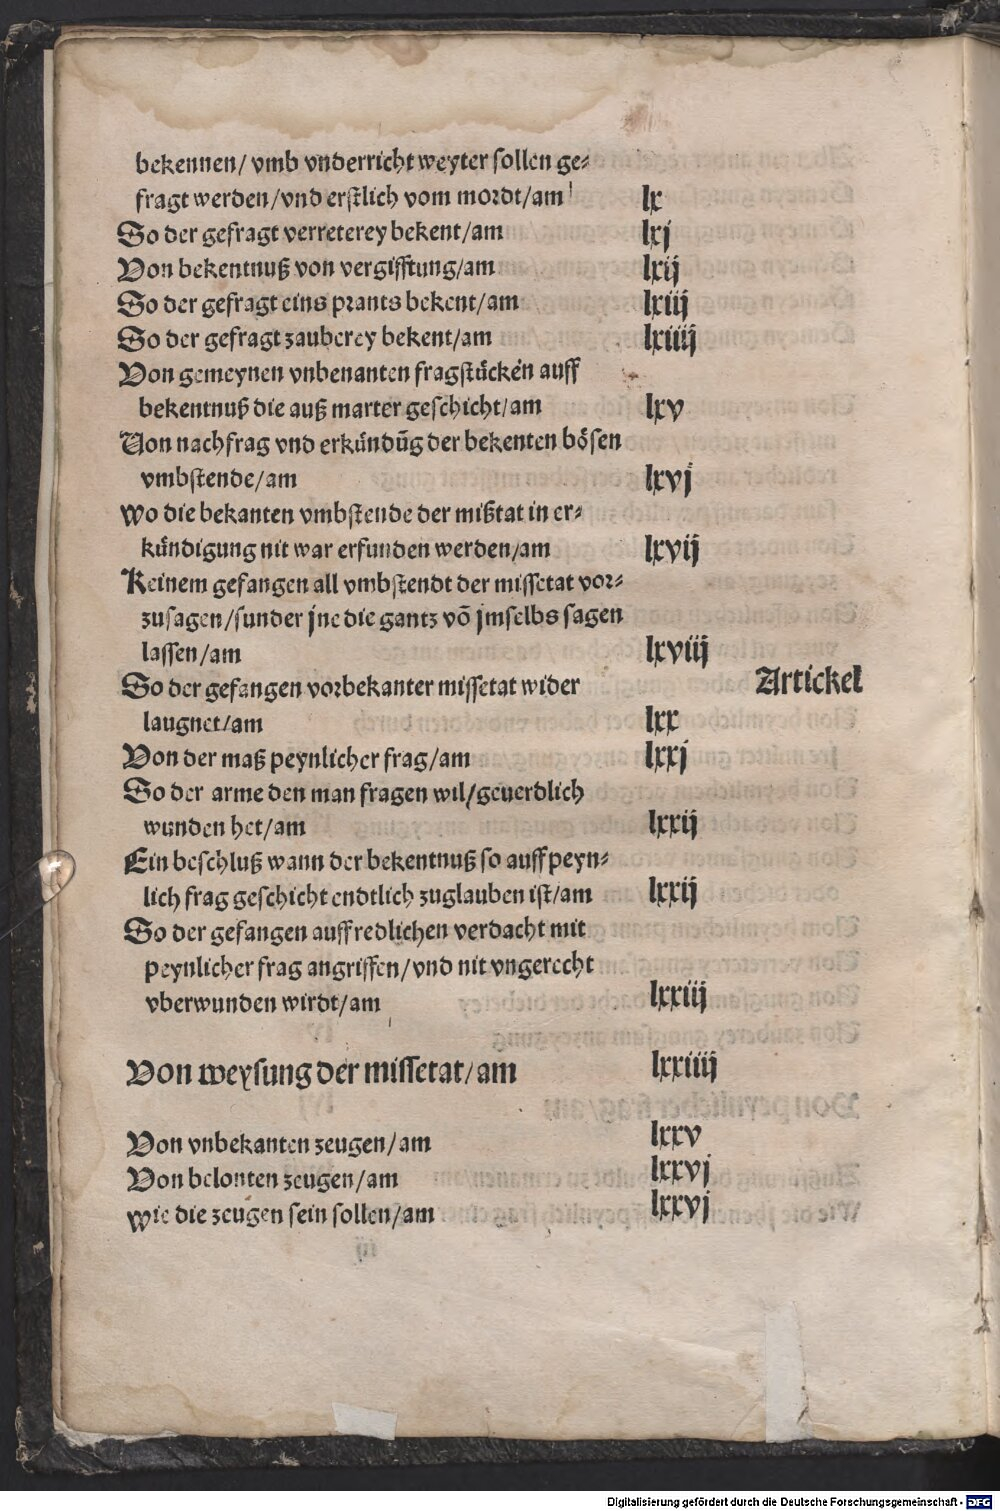 bekennen/ vmb vnderricht weyter sollen ge⸗
fragt werden/vnd erstlich vom mordt/am lx
So der gefragt verreterey bekent/am lxj
Von bekentnuß von vergifftung/am lxij
So der gefragt eins prants bekent/am lxiij
So der gefragt zauberey bekent/am lxiiij
Von gemeynen vnbenanten fragstücken auff
bekentnuß die auß marter geschicht/am lxv
Von nachfrag vnd erkündūg der bekenten bösen
vmbstende/am lxvj
Wo die bekanten vmbstende der mißtat in er⸗
kündigung nit war erfunden werden/am lxvij
Keinem gefangen all vmbstendt der missetat vor⸗
zusagen/sunder jne die gantz vō jmselbs sagen
lassen/am lxviij
So der gefangen vorbekanter missetat wider Artickel
laugnet/am lxx
Von der maß peynlicher frag/am lxxj
So der arme den man fragen wil/geuerdlich
wunden het/am lxxij
Ein beschluß wann der bekentnuß so auff peyn⸗
lich frag geschicht endtlich zuglauben ist/am lxxij
So der gefangen auff redlichen verdacht mit
peynlicher frag angriffen/vnd nit vngerecht
vberwunden wirdt/am lxxiij
Von weysung der missetat/am lxxiiij
Von vnbekanten zeugen/am lxxv
Von belonten zeugen/am lxxvj
Wie die zeugen sein sollen/am lxxvj
Digitalisierung gefördert durch die Deutsche Forschungsgemeinschaft - DFG